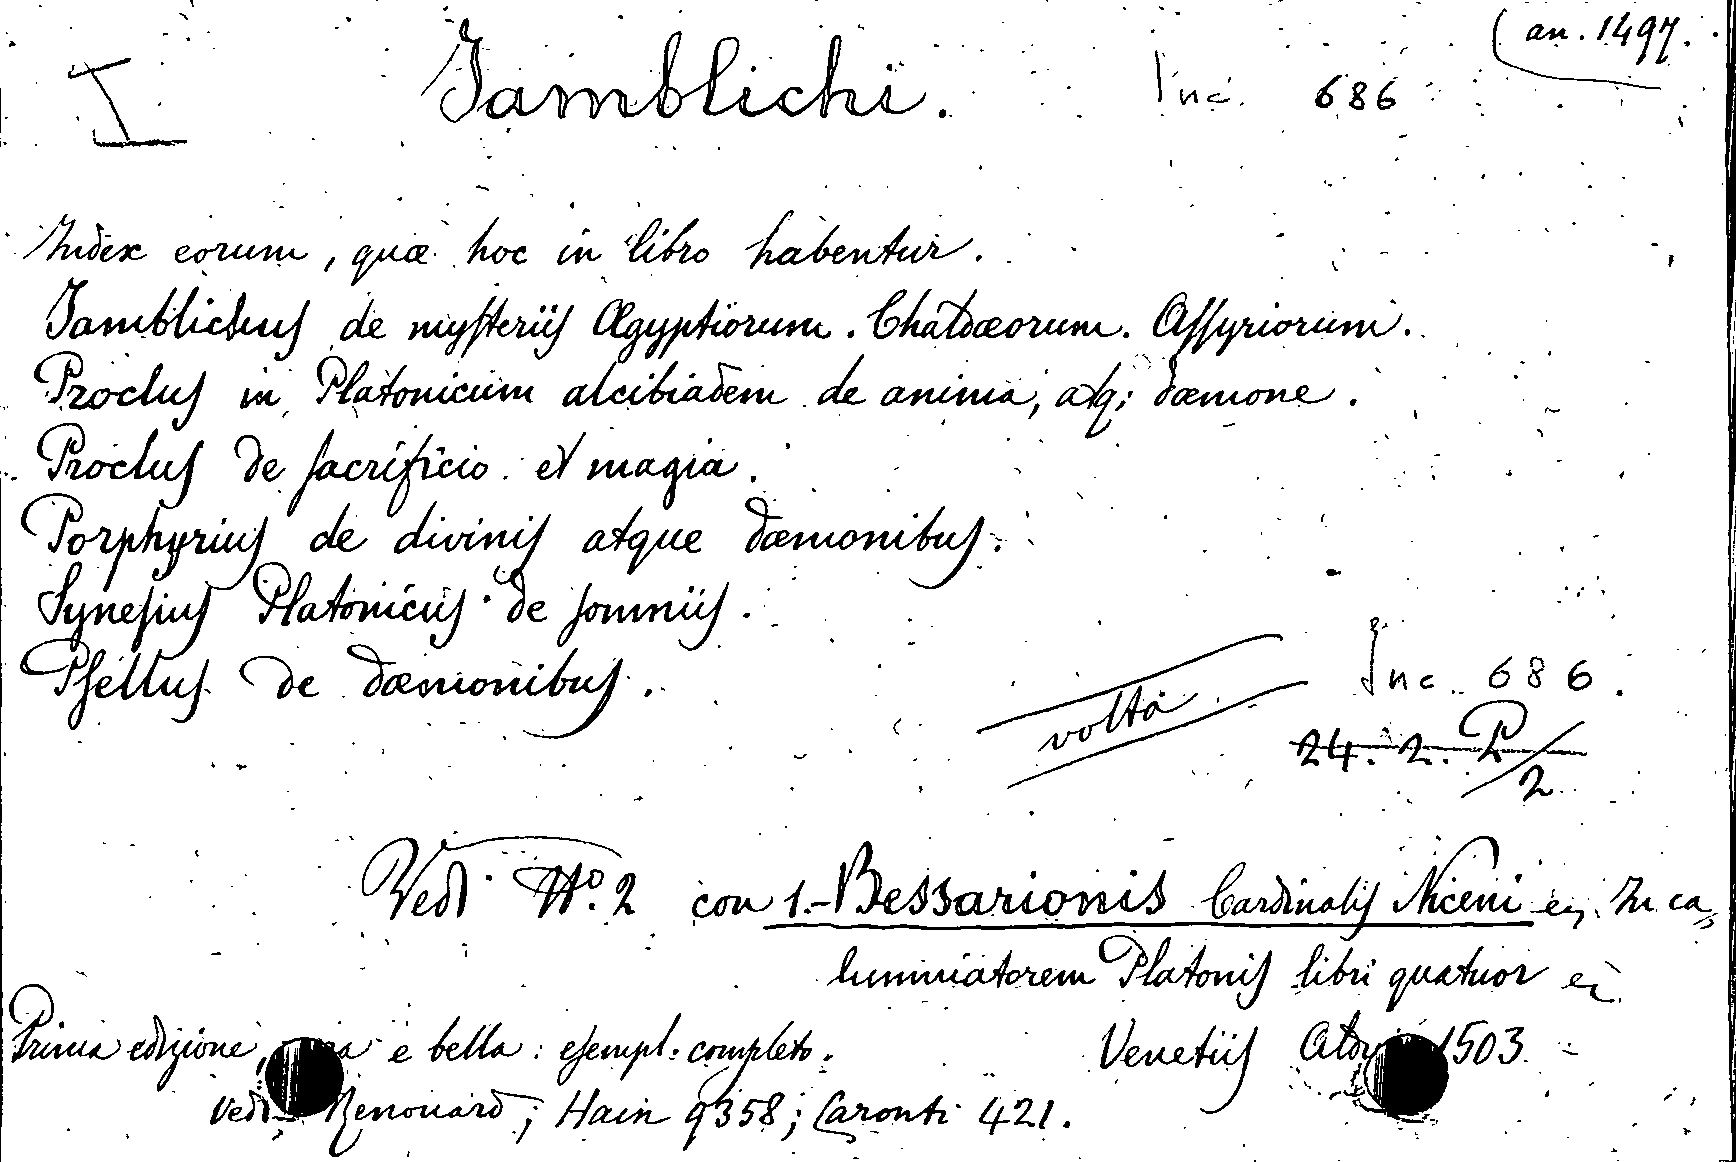 (an. 1497.
I Jamblichi. Inc. 686
Index eorum, quæ hoc in libro habentur.
Jamblichus de mysteriis Ægyptiorum. Chaldæorum. Assyriorum.
Proclus in Platonicum alcibiadem de anima, atq; dæmone.
Proclus de sacrificio et magia.
Porphyrius de divinis atque dæmonibus.
Synesius Platonicus de somniis.
Psellus de dæmonibus.
Inc. 686.
volta
24. 2. P/2
Vedi No. 2 con 1.- Bessarionis Cardinalis Niceni ec. In ca=
lumniatorem Platonis libri quatuor ec.
Prima edizione, e bella: esempl. completo. Venetiis 1503.
Vedi Renouard; Hain 9358; Caronti 421.